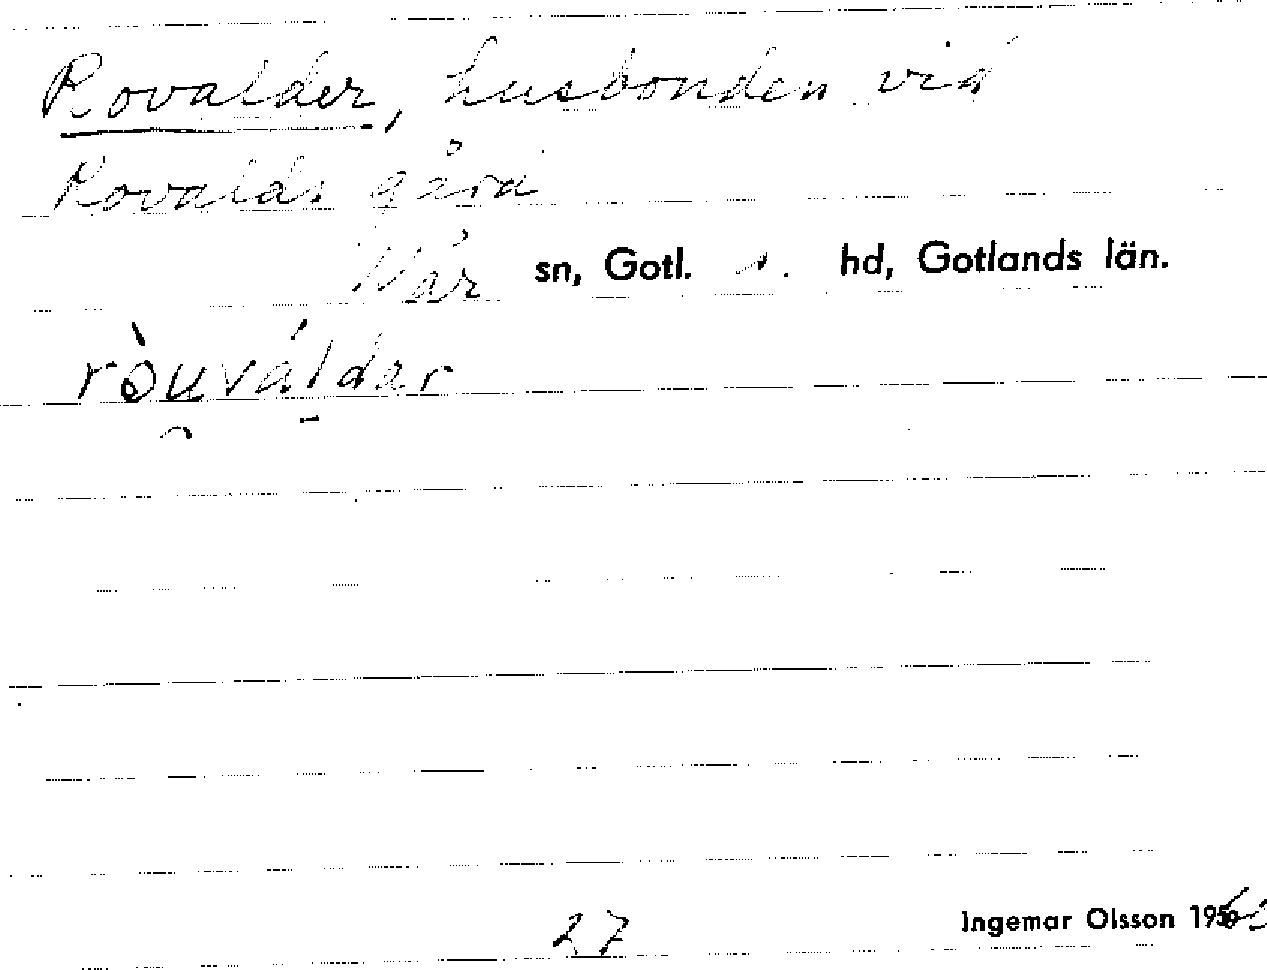 Rovalder, husbonden vid
Rovalds gård
När sn, Gotl. s. hd, Gotlands län.
ròuválder
27
Ingemar Olsson